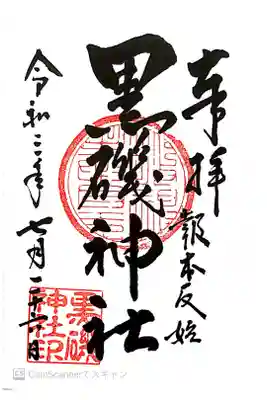 奉拝
報本反始
黒磯神社
令和二年 七月二十六日
黒磯
神社印
CamScannerでスキャン